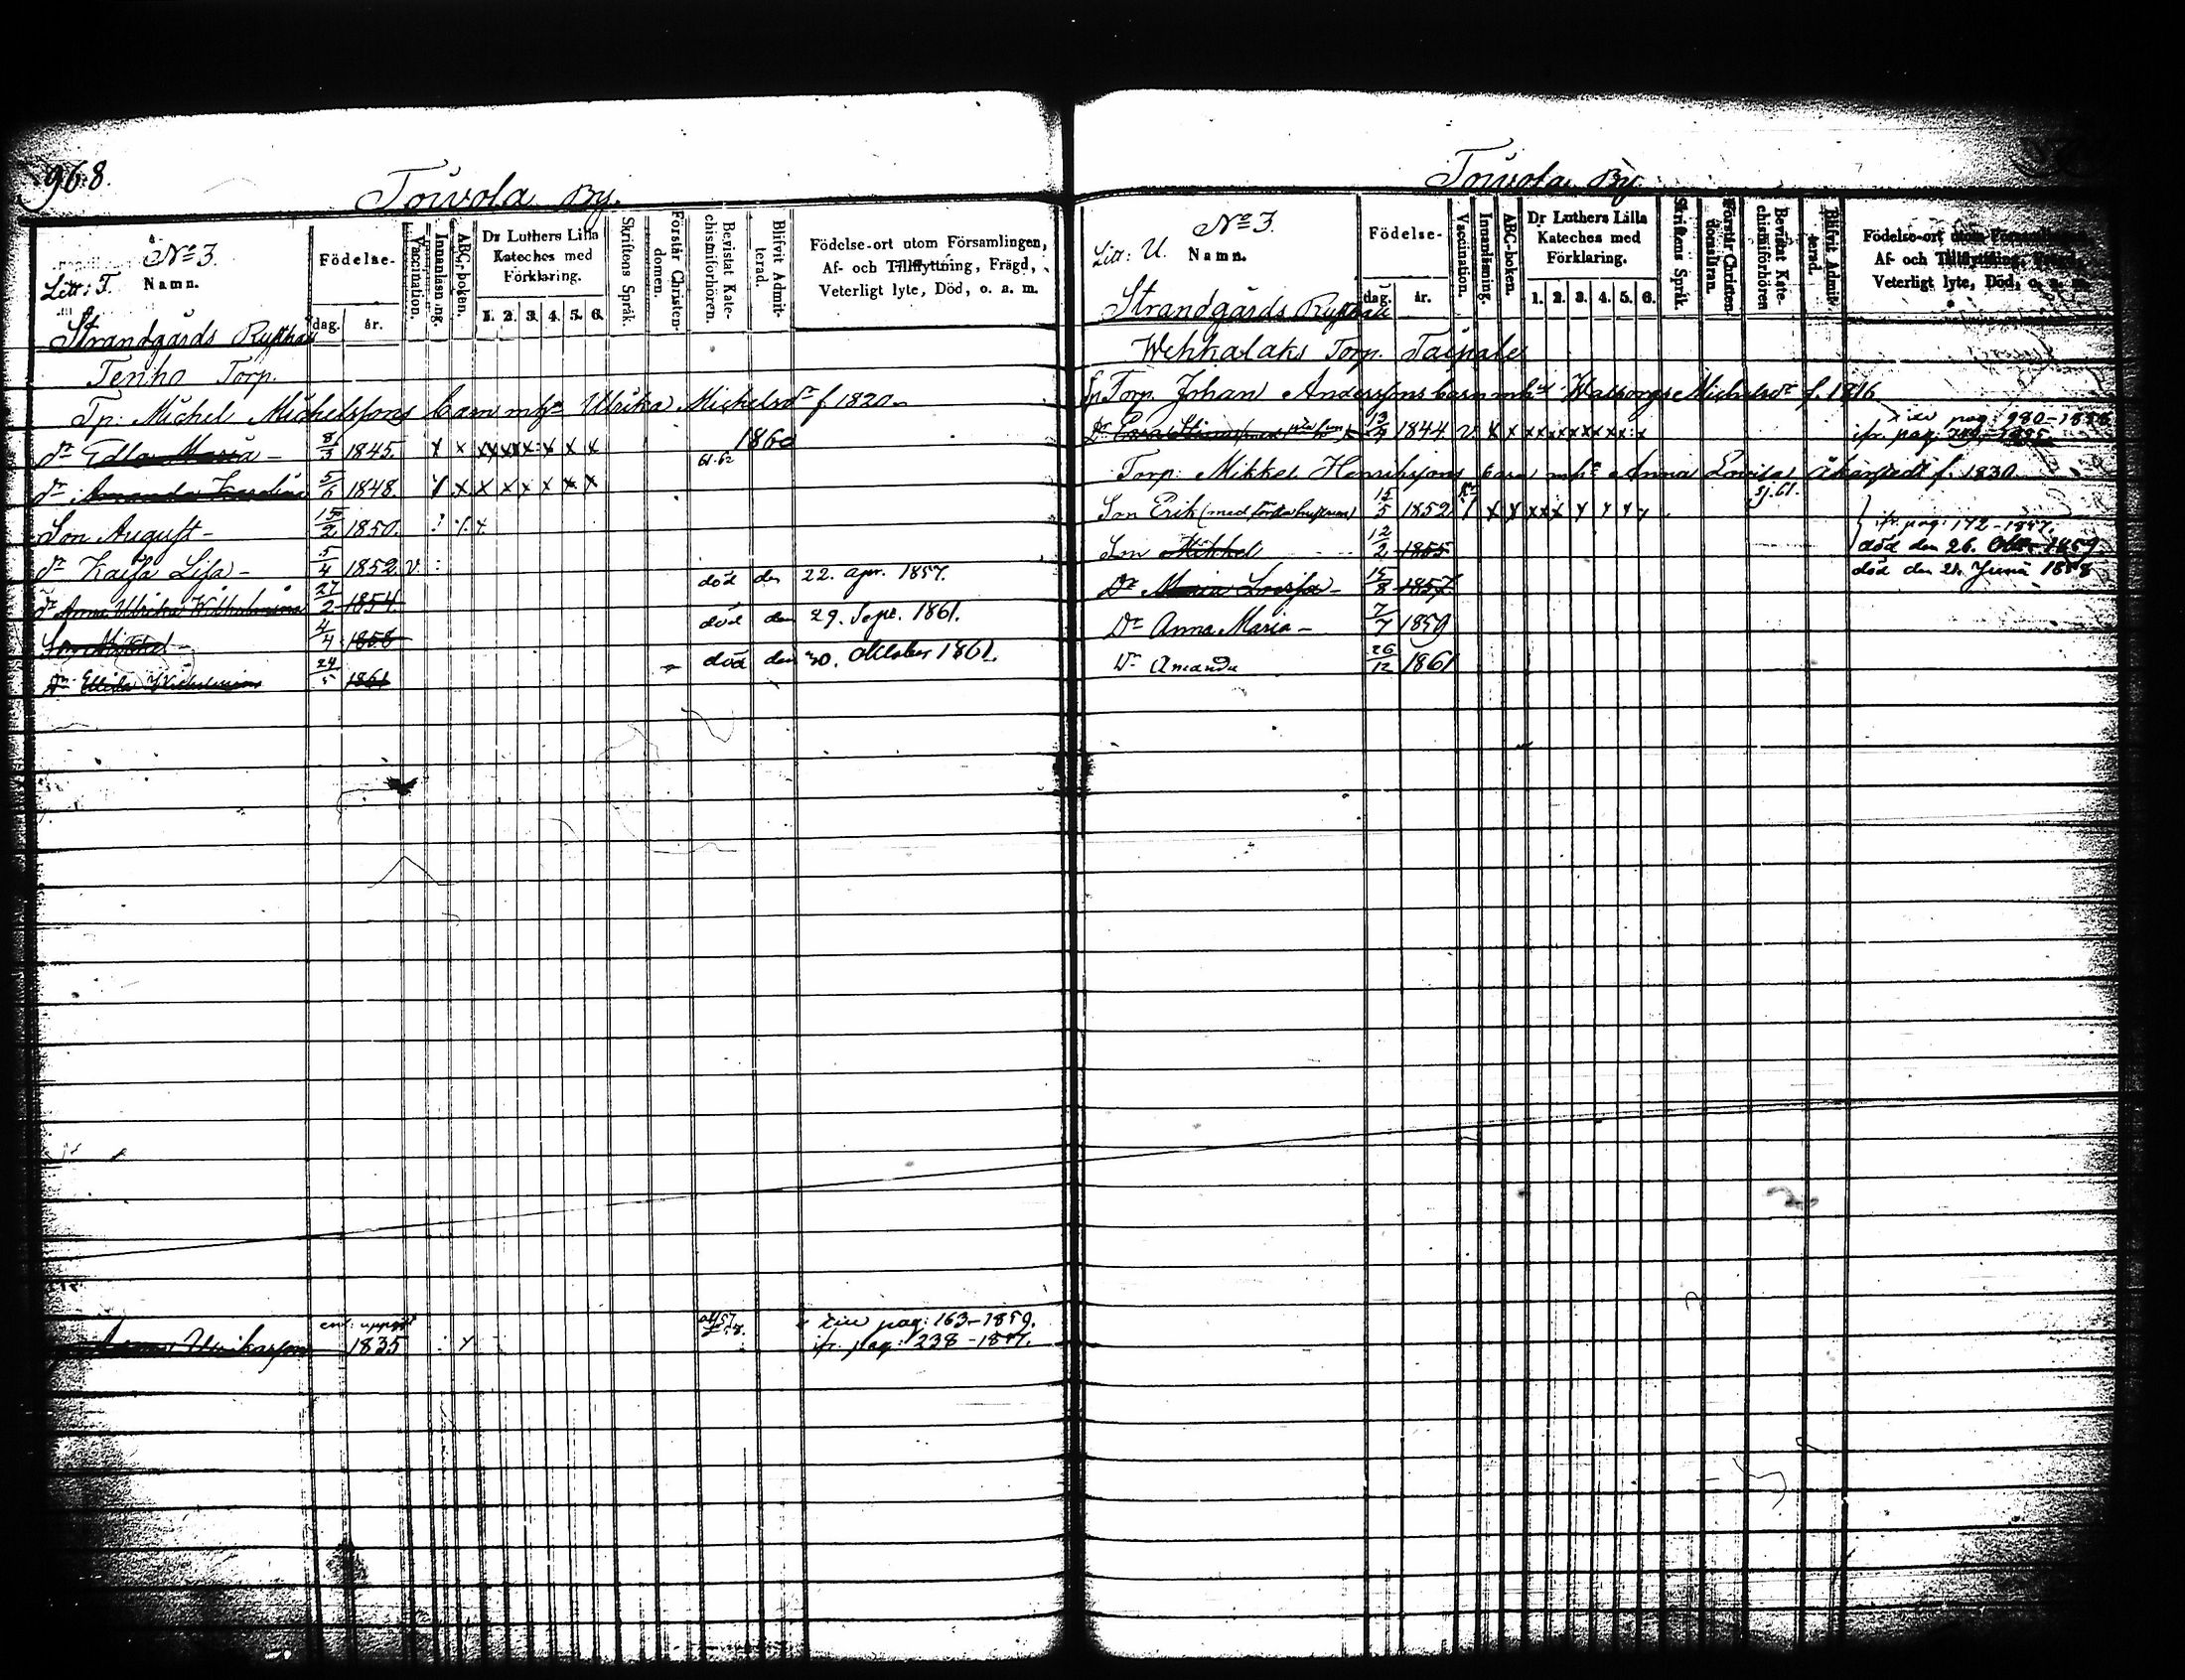 968.
Toivola By.
No 3.
Litt: T.
Namn.
Födelse-
dag. år.
Vaccination.
Innanläsning.
ABC-boken.
Dr Luthers Lilla Kateches med Förklaring.
1. 2. 3. 4. 5. 6.
Skriftens Språk.
Förstår Christendomen.
Bevistat Katechismiförhören.
Blifvit Admitterad.
Födelse-ort utom Församlingen,
Af- och Tillflyttning, Frägd,
Veterligt lyte, Död, o. a. m.
Strandgårds
Tenho Torp.
Tp: Michel Michelssons barn Ulrika f 1820
dr Edla Maria - 8/3 1845. x x x x x x x x 1860
dr Amanda Karolina 5/6 1848. x x x x x x x 61.62
Son August - 15/2 1850.
dr Kaisa Lisa - 5/4 1852. v
dr Anna Ulrika Wilhelmina 27/2 1854. död den 22. apr. 1857.
Son Mikkel - 4/4 1858 död den 29. Sept. 1861.
Dr Wilhelmina 24/5 1861 död den 30. Oktober 1861.
Ulrikasson 1835 x
pag: 163-1859.
pag: 238-1847.
Toivola By
No 3.
Litt: U.
Namn.
Födelse-
dag. år.
Vaccination.
Innanläsning.
ABC-boken.
Dr Luthers Lilla Kateches med Förklaring.
1. 2. 3. 4. 5. 6.
Skriftens Språk.
Förstår Christendomsläran.
Bevistat Katechismiförhören
Blifvit Admitterad.
Födelse-ort utom Församlingen,
Af- och Tillflyttning, Frägd,
Veterligt lyte, Död, o. a. m.
Strandgårds
Wehkalaks Torp. Taipale
Torp. Johan Anderssons barn f. 1816
1844 v x x x x x x x x pag: 980-1856
Torp: Mikkel Henrikssons barn Anna Lovisa f. 1830
Son Erik 15/5 1852 x x x x x x x
Son Mikkel 12/2 1855 död den 26. 1859
Dr Maria Lovisa - 15/8 1857 död den 21. Junii 1858
Dr Anna Maria - 7/7 1859
Dr Amanda 26/12 1861